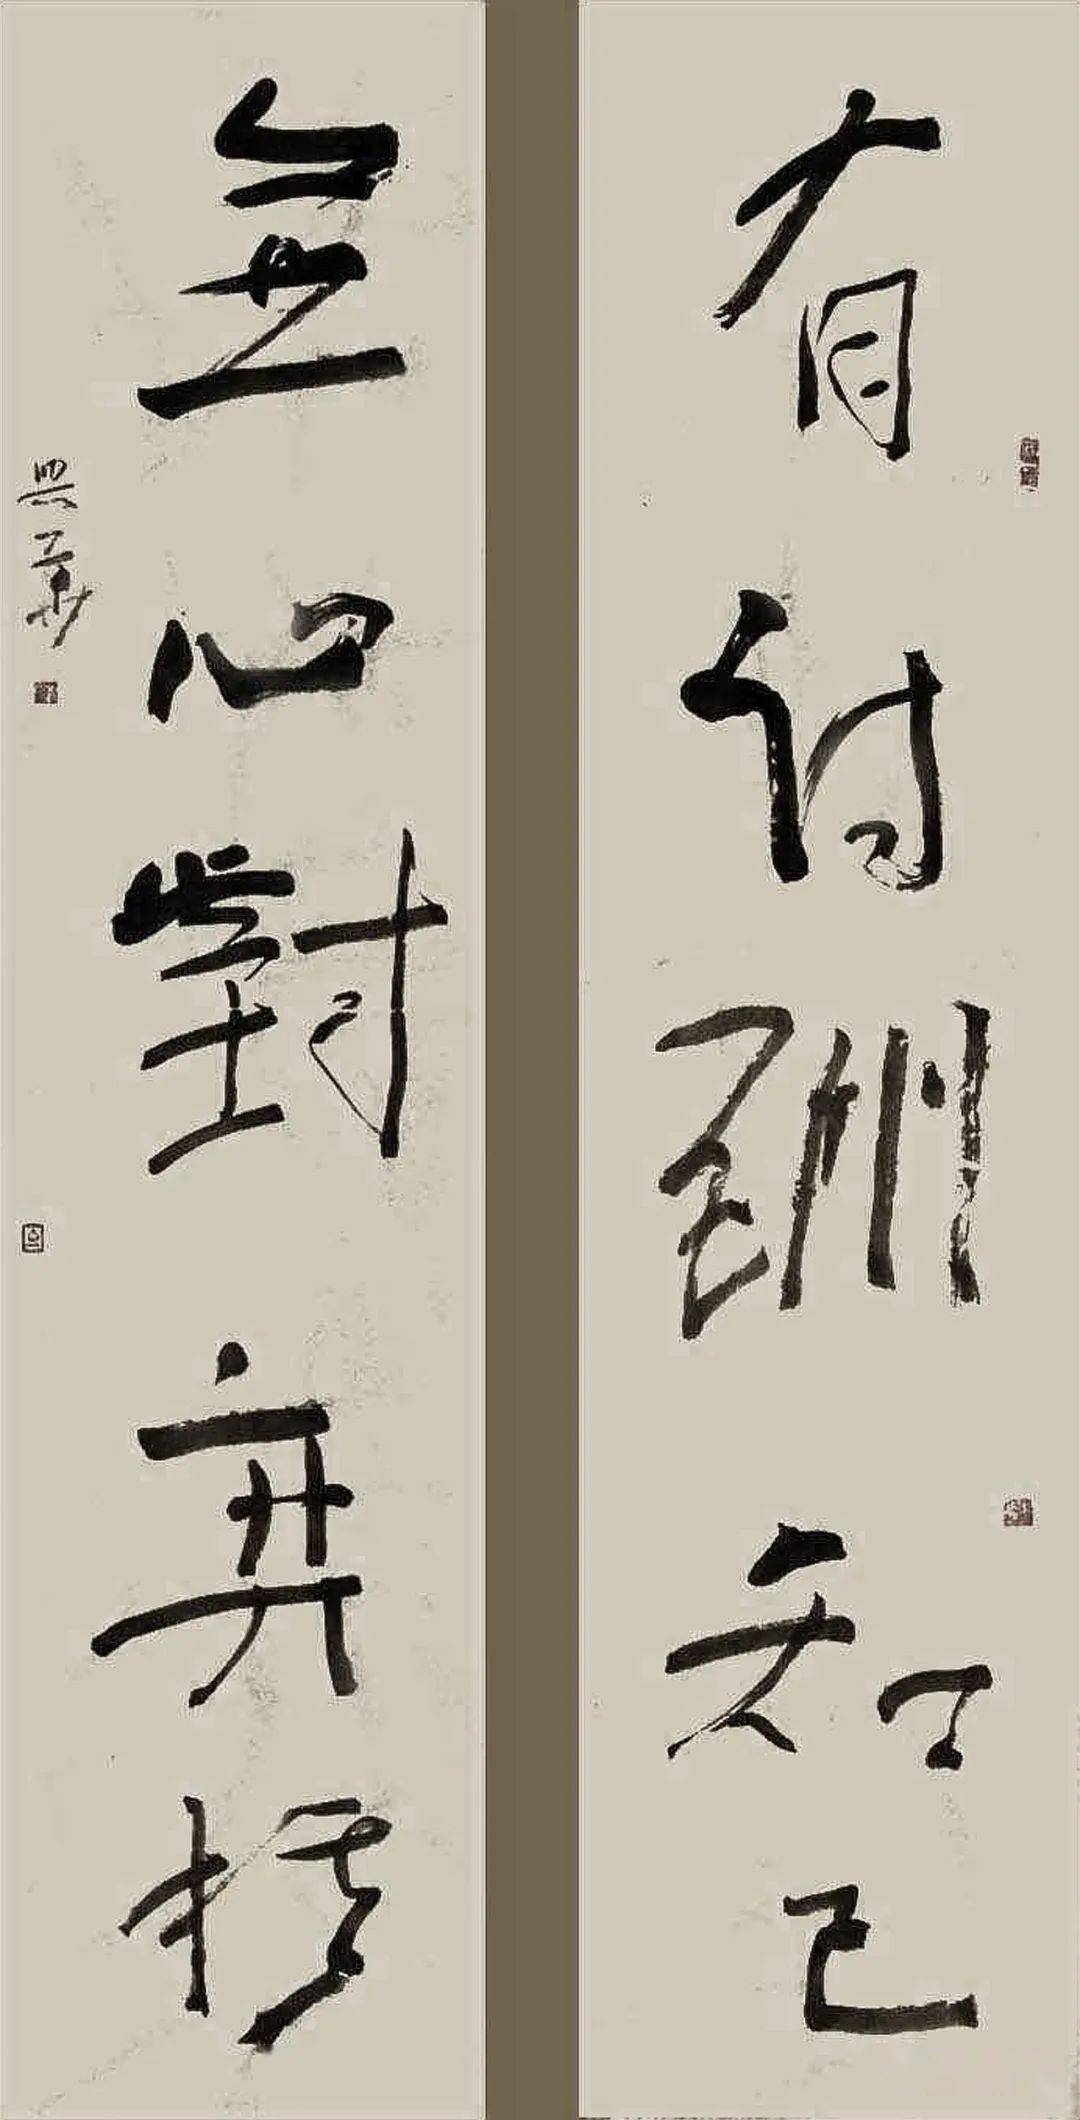 有酬知己
無心對弈棋